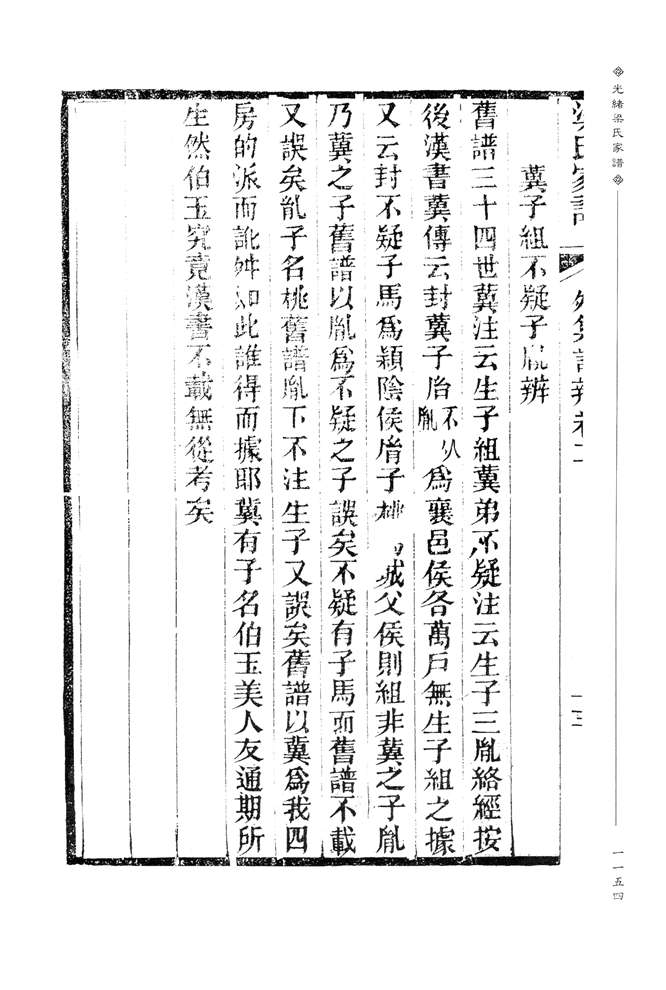 光緒梁氏家譜
梁氏家譜
外集詁辨卷二
冀子組不疑子胤辨
舊譜三十四世冀注云生子組冀弟不疑注云生子三胤絡經按
後漢書冀傳云封冀子胤不爲襄邑侯各萬戶無生子組之據
又云封不疑子馬爲穎陰侯胤子桃城父侯則組非冀之子胤
乃冀之子舊譜以胤爲不疑之子誤矣不疑有子馬而舊譜不載
又誤矣胤子名桃舊譜胤下不注生子又誤矣舊譜以冀爲我四
房的派而訛舛如此誰得而據耶冀有子名伯玉美人友通期所
生然伯玉究竟漢書不載無從考矣
十三
一一五四